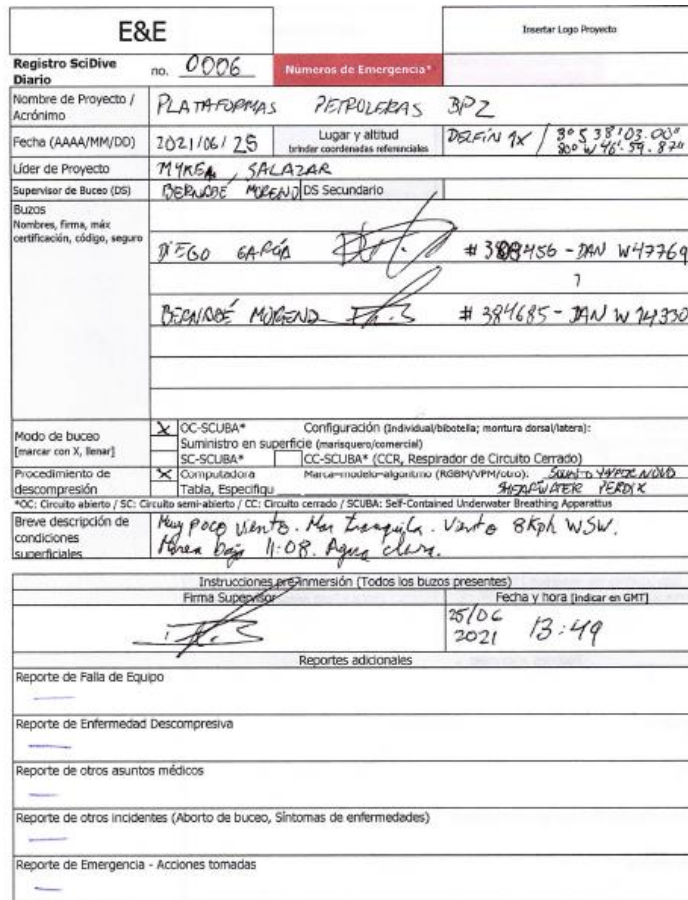 E&E
Insertar Logo Proyecto
Registro SciDive Diario no. 0006 Números de Emergencia*
Nombre de Proyecto / Acrónimo PLATAFORMAS PETROLERAS BPZ
Fecha (AAAA/MM/DD) 2021/06/25 Lugar y altitud brinder coordenadas referenciales DELFÍN 1X / 3° S 38'03.00"
80° W 46'.59.87"
Líder de Proyecto SALAZAR
Supervisor de Buceo (DS) BERNABÉ MORENO DS Secundario
Buzos
Nombres, firma, máx certificación, código, seguro
DIEGO GARCÍA - DAN W47769
BERNABÉ MORENO # 384685 - DAN W
Modo de buceo
[marcar con X, llenar]
X OC-SCUBA* Configuración (Individual/bibotella; montura dorsal/latera):
Suministro en superficie (marisquero/comercial)
SC-SCUBA* CC-SCUBA* (CCR, Respirador de Circuito Cerrado)
Procedimiento de descompresión
X Computadora Marca-modelo-algoritmo (RGBM/VPM/otro): NOVO
Tabla, Especifiqu SHEARWATER PERDIX
*OC: Circuito abierto / SC: Circuito semi-abierto / CC: Circuito cerrado / SCUBA: Self-Contained Underwater Breathing Apparattus
Breve descripción de condiciones superficiales
Muy poco viento. Mar tranquila. Viento 8Kph WSW.
Marea baja 11:08. Agua clara.
Instrucciones pre-inmersión (Todos los buzos presentes)
Firma Supervisor Fecha y hora [indicar en GMT]
25/06
2021 13:49
Reportes adicionales
Reporte de Falla de Equipo
Reporte de Enfermedad Descompresiva
Reporte de otros asuntos médicos
Reporte de otros incidentes (Aborto de buceo, Síntomas de enfermedades)
Reporte de Emergencia - Acciones tomadas